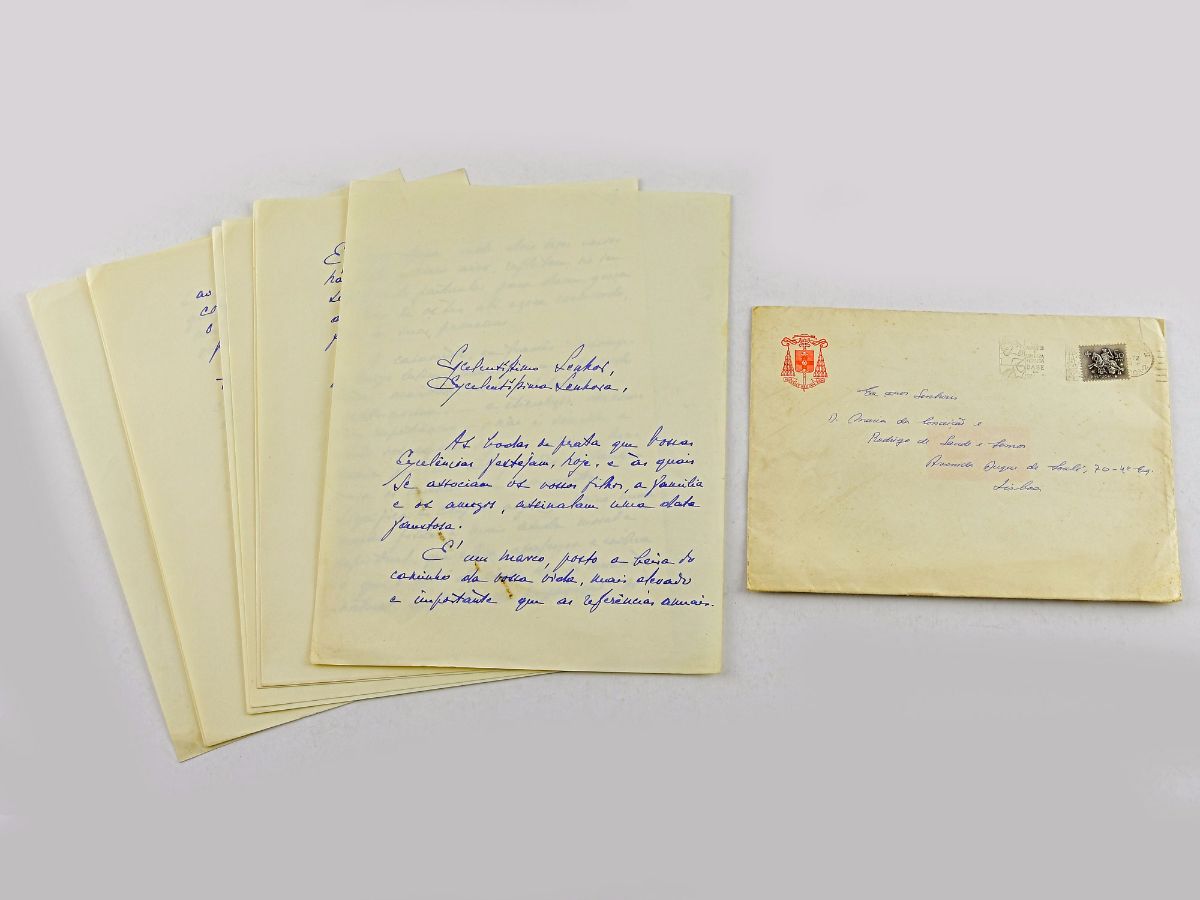 Excelentíssimo Senhor,
Excelentíssima Senhora,
As bodas de prata que Vossas
Excelências festejam, hoje, e às quais
se associam os vossos filhos, a família
e os amigos, assinalam uma data
faustosa.
É um marco, posto a beira do
caminho da vossa vida, mais elevado
e importante que as referências anuais.
ao
co
o
É
Senhores
D. Maria da Conceição e
Rodrigo de Sande e Lemos
Avenida Duque de Loulé, 70-4º Esq.
Lisboa